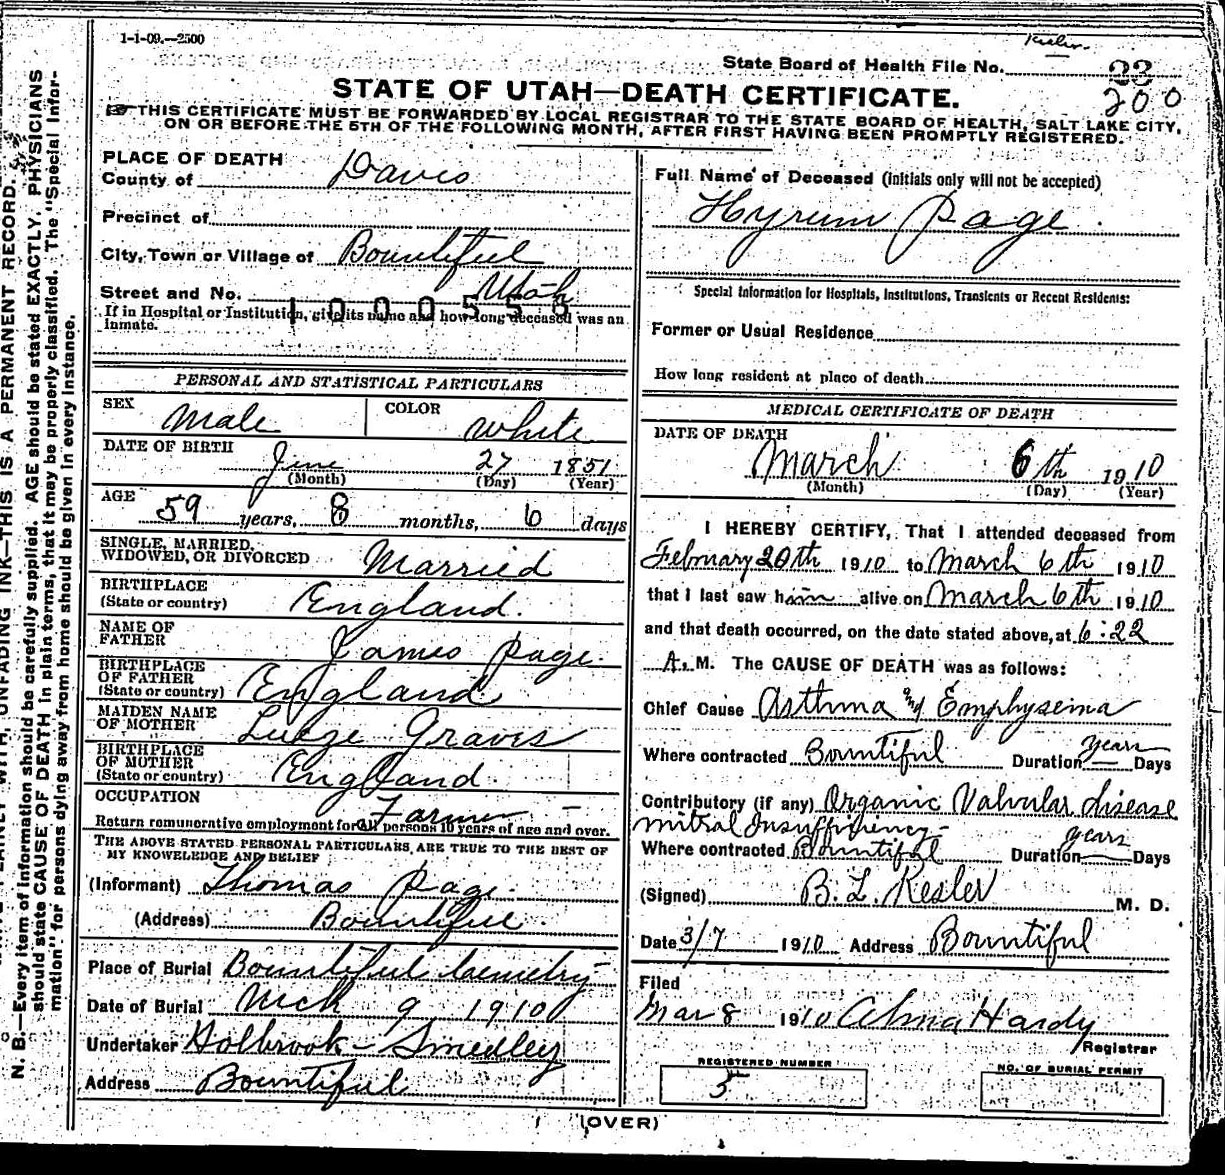 1-1-09.—2500
State Board of Health File No. 23
200
STATE OF UTAH—DEATH CERTIFICATE.
THIS CERTIFICATE MUST BE FORWARDED BY LOCAL REGISTRAR TO THE STATE BOARD OF HEALTH, SALT LAKE CITY,
ON OR BEFORE THE 5TH OF THE FOLLOWING MONTH, AFTER FIRST HAVING BEEN PROMPTLY REGISTERED.
N. B.—Every item of information should be carefully supplied. AGE should be stated EXACTLY. PHYSICIANS
should state CAUSE OF DEATH in plain terms, that it may be properly classified. The "Special Infor-
mation" for persons dying away from home should be given in every instance.
UNFADING INK—THIS IS A PERMANENT RECORD.
PLACE OF DEATH
County of Davis
Precinct of
City, Town or Village of Bountiful
Street and No. Utah
1000558
If in Hospital or Institution, give its name and how long deceased was an
inmate.
PERSONAL AND STATISTICAL PARTICULARS
SEX Male COLOR White
DATE OF BIRTH June 27 1851
(Month) (Day) (Year)
AGE 59 years, 8 months, 6 days
SINGLE, MARRIED,
WIDOWED, OR DIVORCED Married
BIRTHPLACE
(State or country) England.
NAME OF
FATHER James Page.
BIRTHPLACE
OF FATHER
(State or country) England
MAIDEN NAME
OF MOTHER Graves
BIRTHPLACE
OF MOTHER
(State or country) England.
OCCUPATION Farmer
Return remunerative employment for all persons 10 years of age and over.
THE ABOVE STATED PERSONAL PARTICULARS ARE TRUE TO THE BEST OF
MY KNOWLEDGE AND BELIEF
(Informant) Thomas Page.
(Address) Bountiful
Place of Burial Bountiful Cemetry
Date of Burial Mch 9 1910
Undertaker Holbrook - Smedley
Address Bountiful
Full Name of Deceased (initials only will not be accepted)
Hyrum Page
Special Information for Hospitals, Institutions, Transients or Recent Residents:
Former or Usual Residence
How long resident at place of death
MEDICAL CERTIFICATE OF DEATH
DATE OF DEATH
March 6th 1910
(Month) (Day) (Year)
I HEREBY CERTIFY, That I attended deceased from
February 20th 1910 to March 6th 1910
that I last saw him alive on March 6th 1910
and that death occurred, on the date stated above, at 6:22
A. M. The CAUSE OF DEATH was as follows:
Chief Cause Asthma and Emphysema
Where contracted Bountiful Duration years Days
Contributory (if any) Organic Valvular disease
mitral Insufficiency-
Where contracted Bountiful Duration years Days
(Signed) B. L. Kesler M. D.
Date 3/7 1910 Address Bountiful
Filed
Mar 8 1910 Alma Hardy
Registrar
REGISTERED NUMBER
5
NO. OF BURIAL PERMIT
(OVER)